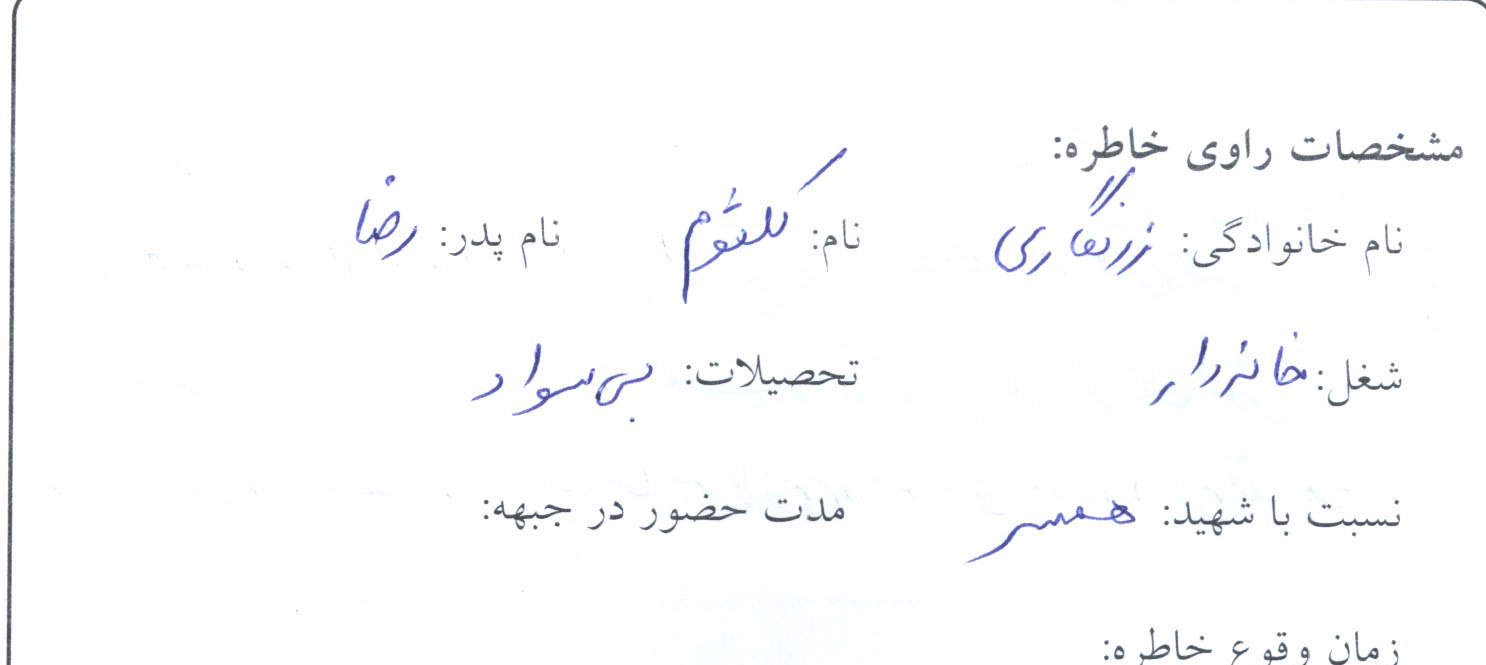 مشخصات راوی خاطره:
نام خانوادگی: زرنگاری نام: کلثوم نام پدر: رضا
شغل: خانه‌دار تحصیلات: بی سواد
نسبت با شهید: همسر مدت حضور در جبهه:
زمان وقوع خاطره: